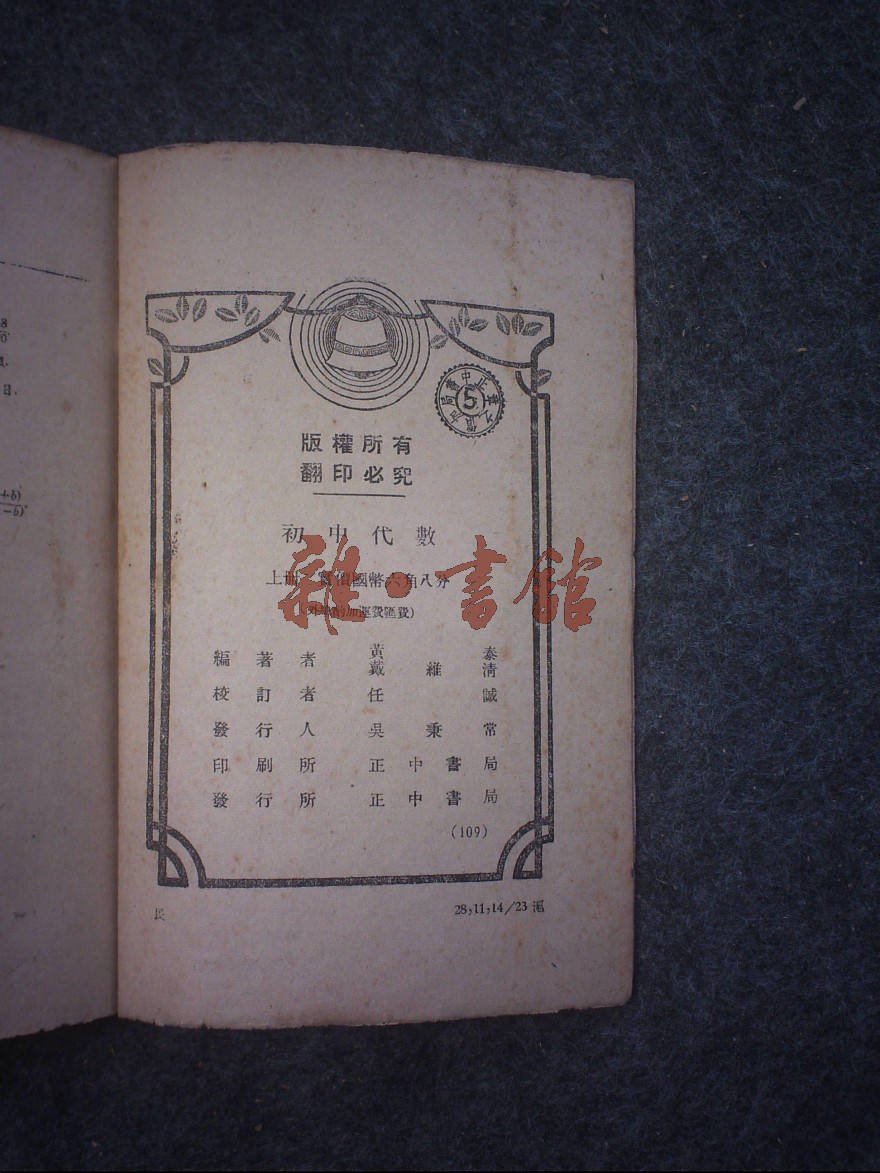 版權所有
翻印必究
初中代數
上冊 實價國幣六角八分
(外埠酌加運費匯費)
編著者 黃泰
戴維清
校訂者 任誠
發行人 吳秉常
印刷所 正中書局
發行所 正中書局
(109)
28,11,14/23 滬
5
雜·書館
+b)
-b)